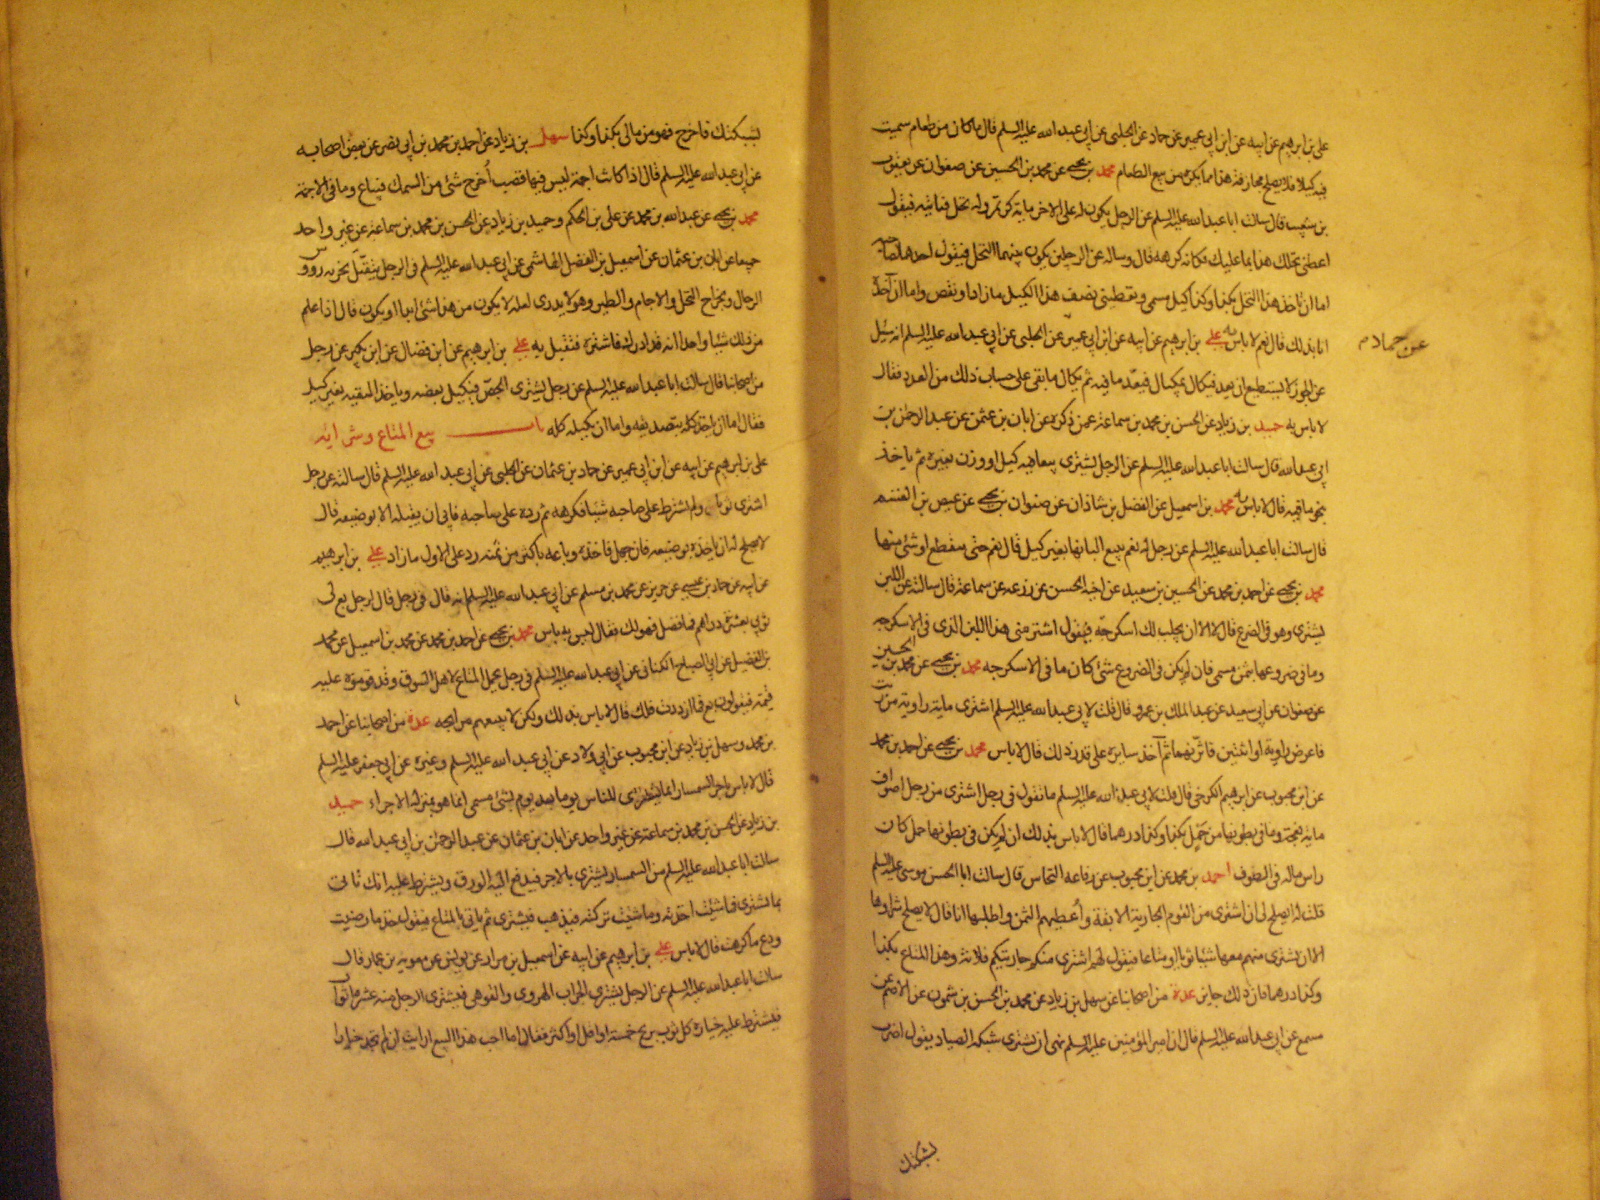 علي بن ابرهيم عن ابيه عن ابن ابي عمير عن حماد عن الحلبي عن ابي عبد الله عليه السلم قال ما كان من طعام سميت
فيه كيلا فلا يصلح مجازفة هذا مما يكره من بيع الطعام محمد بن يحيى عن محمد بن الحسين عن صفوان عن يعقوب
بن شعيب قال سالت ابا عبد الله عليه السلم عن الرجل يكون له على الاخر ماية كر تمر وله نخل فياتيه فيقول
اعطني نخلك هذا بما عليك فكانه كرهه قال وسالته عن الرجلين يكون بينهما النخل فيقول احدهما لصاحبه
اما ان تاخذ هذا النخل بكذا وكذا كيل مسمى وتعطيني نصف هذا الكيل ما زاد او نقص واما ان آخذه
انا بذلك قال نعم لا باس به علي بن ابرهيم عن ابيه عن ابن ابي عمير عن الحلبي عن ابي عبد الله عليه السلم انه سئل
عن حماد م
عن الجوز لا يستطيع ان يعد فيكال بمكيال فيعد ما فيه ثم يكال ما بقي على حساب ذلك من العدد فقال
لا باس به حميد بن زياد عن الحسن بن محمد بن سماعة عمن ذكره عن ابان بن عثمن عن عبد الرحمن بن
ابي عبد الله قال سالت ابا عبد الله عليه السلم عن الرجل يشتري بيعا فيه كيل او وزن بغيره ثم ياخذ
نحو ما فيه قال لا باس به محمد بن اسمعيل عن الفضل بن شاذان عن صفوان بن يحيى عن عيص بن القسم
قال سالت ابا عبد الله عليه السلم عن رجل له نعم يبيع البانها بغير كيل قال نعم حتى ينقطع او شئ منها
محمد بن يحيى عن احمد بن محمد عن الحسين بن سعيد عن اخيه الحسن عن زرعه عن سماعة قال سالته عن اللبن
يشترى وهو في الضرع قال لا الا ان يحلب لك اسكرجه فيقول اشتر مني هذا اللبن الذي في الاسكرجه
وما في ضروعها بثمن مسمى فان لم يكن في الضروع شئ كان ما في الاسكرجه محمد بن يحيى عن محمد بن الحسين
عن صفوان عن ابي سعيد عن عبد الملك بن عمرو قال قلت لابي عبد الله عليه السلم اشتري ماية راوية من زيت
فاعرض راوية او اثنتين فاتزنهما ثم آخذ سايره على قدر ذلك قال لا باس محمد بن يحيى عن احمد بن محمد
عن ابن محبوب عن ابرهيم الكرخي قال قلت لابي عبد الله عليه السلم ما تقول في رجل اشترى من رجل اصواف
ماية نعجة وما في بطونها من حمل بكذا وكذا درهما قال لا باس بذلك ان لم يكن في بطونها حمل كان
راس ماله في الصوف احمد بن محمد عن ابن محبوب عن رفاعه النخاس قال سالت ابا الحسن موسى عليه السلم
قلت له ايصلح لي ان اشتري من القوم الجارية الابقة واعطيهم الثمن واطلبها انا قال لا يصلح شراوها
الا ان يشتري منهم معها شيئا ثوبا او متاعا فيقول لهم اشتري منكم جاريتكم فلانة وهذا المتاع بكذا
وكذا درهما فان ذلك جايز عدة من اصحابنا عن سهل بن زياد عن محمد بن الحسن بن شمون عن الاصم عن
مسمع عن ابي عبد الله عليه السلم قال ان امير المؤمنين عليه السلم نهى ان يشترى شبكة الصياد يقول اضرب
بشبكتك
بشبكتك فما خرج فهو من مالي بكذا وكذا سهل بن زياد عن احمد بن محمد بن ابي نصر عن بعض اصحابه
عن ابي عبد الله عليه السلم قال اذا كانت اجمة ليس فيها قصب اخرج شئ من السمك فيباع وما في الاجمة
محمد بن يحيى عن عبد الله بن محمد عن علي بن الحكم وحميد بن زياد عن الحسن بن محمد بن سماعة عن غير واحد
جميعا عن ابان بن عثمان عن اسمعيل بن الفضل الهاشمي عن ابي عبد الله عليه السلم في الرجل يتقبل بجزية رووس
الرجال وبخراج النخل والاجام والطير وهو لا يدري لعله لا يكون من هذا شئ ابدا او يكون قال اذا علم
من ذلك شيئا واحدا انه قد ادرك فاشتره فتقبل به علي بن ابرهيم عن ابن فضال عن ابن بكير عن رجل
من اصحابنا قال سالت ابا عبد الله عليه السلم عن رجل يشتري الجص فيكيل بعضه وياخذ البقيه بغير كيل
فقال اما ان ياخذ كله بتصديقه واما ان يكيله كله باب بيع المتاع وشرايه
علي بن ابرهيم عن ابيه عن ابن ابي عمير عن حماد بن عثمان عن الحلبي عن ابي عبد الله عليه السلم قال سالته عن رجل
اشترى ثوبا ولم يشترط على صاحبه شيئا فكرهه ثم رده على صاحبه فابى ان يقبله الا بوضيعة قال
لا يصلح له ان ياخذه بوضيعه فان جهل فاخذه وباعه باكثر من ثمنه رد على الاول ما زاد علي بن ابرهيم
عن ابيه عن حماد بن عيسى عن حريز عن محمد بن مسلم عن ابي عبد الله عليه السلم انه قال في رجل قال لرجل بع لي
ثوبي بعشرة دراهم فما فضل فهو لك فقال ليس به باس محمد بن يحيى عن احمد بن محمد عن محمد بن اسمعيل عن محمد
بن الفضيل عن ابي الصباح الكناني عن ابي عبد الله عليه السلم في رجل يحمل المتاع لاهل السوق وقد قوموه عليه
قيمته فيقولون بع فما ازددت فلك قال لا باس بذلك ولكن لا يبيعهم مرابحه عدة من اصحابنا عن احمد
بن محمد وسهل بن زياد عن ابن محبوب عن ابي ولاد عن ابي عبد الله عليه السلم وغيره عن ابي جعفر عليه السلم
قال لا باس باجر السمسار انما يشتري للناس يوما بعد يوم بشئ مسمى انما هو بمنزلة الاجراء حميد
بن زياد عن الحسن بن محمد بن سماعة عن غير واحد عن ابان بن عثمان عن عبد الرحمن بن ابي عبد الله قال
سالت ابا عبد الله عليه السلم من السمسار يشتري بالاجر فيدفع اليه الورق ويشترط عليه انك تاتي
بما تشتري فما شئت اخذته وما شئت تركته فيذهب فيشتري ثم ياتي بالمتاع فيقول خذ ما رضيت
ودع ما كرهت قال لا باس علي بن ابرهيم عن ابيه عن اسمعيل بن مرار عن يونس عن معوية بن عمار قال
سالت ابا عبد الله عليه السلم عن الرجل يشتري الجراب الهروي والقوهي فيشتري الرجل منه عشرة اثواب
فيشترط عليه خياره كل ثوب بربح خمسة او اقل او اكثر فقال ما احب هذا البيع ارايت ان لم تجد خيارا